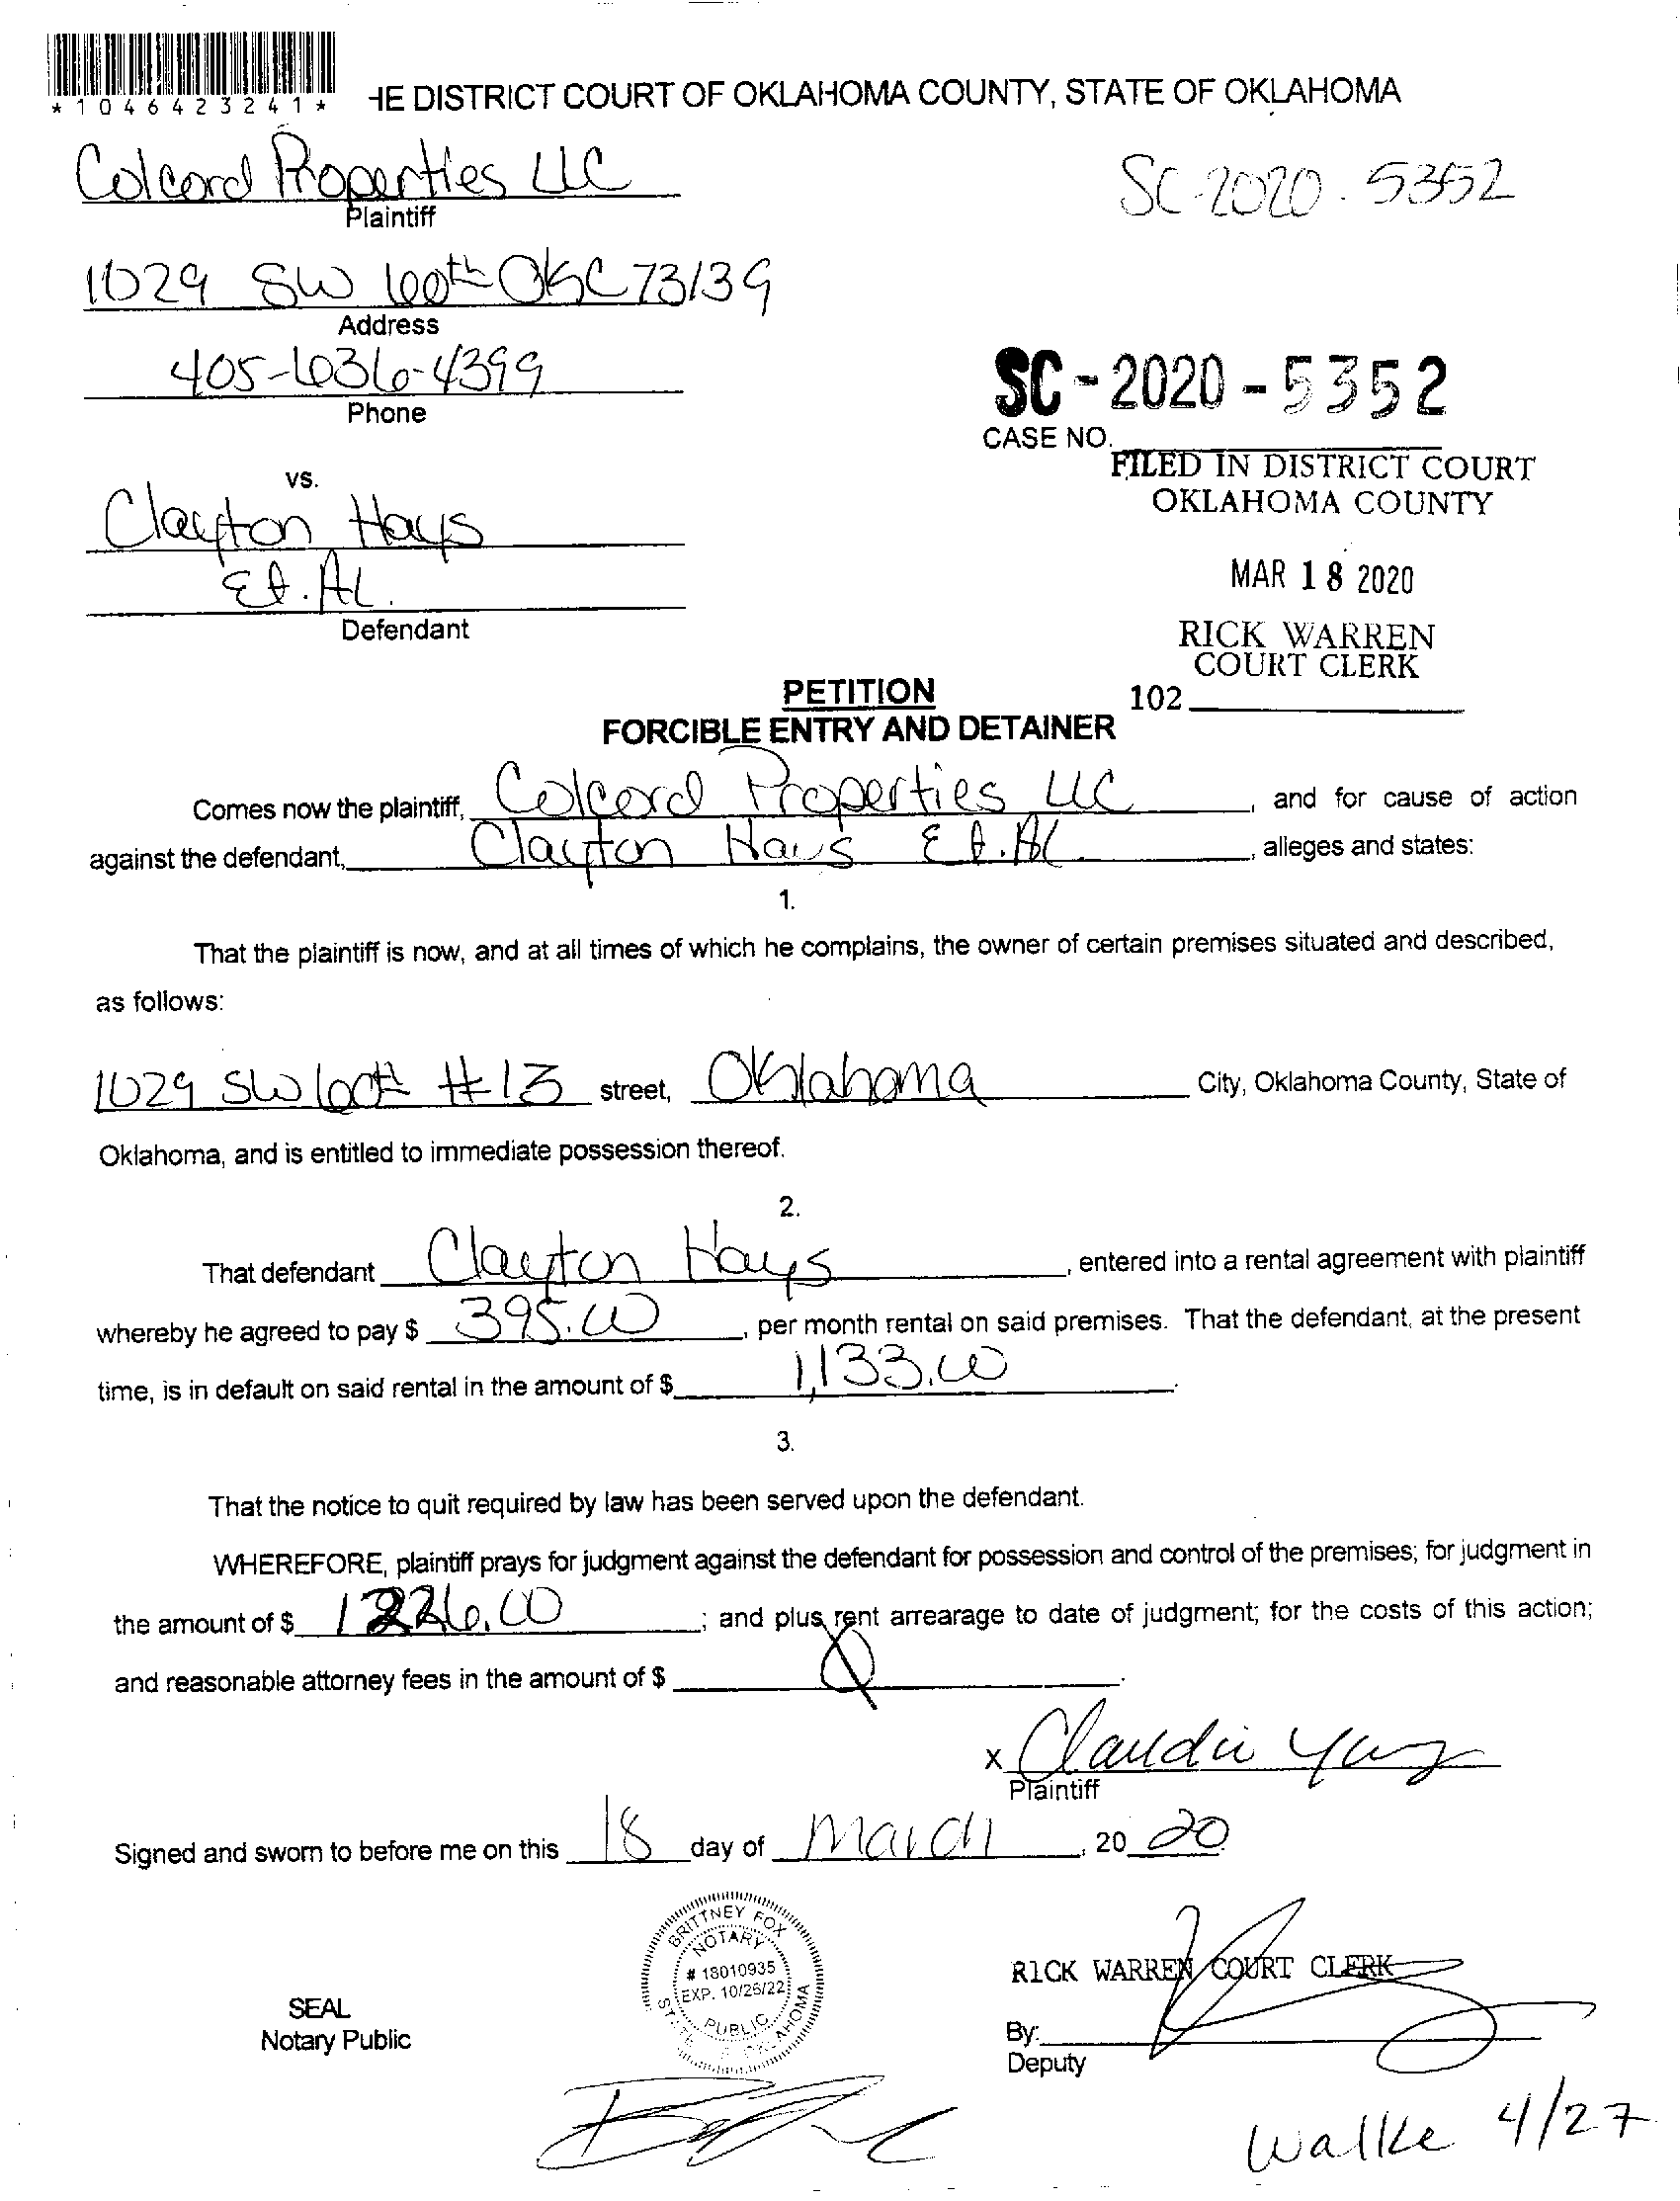 *1046423241*
HE DISTRICT COURT OF OKLAHOMA COUNTY, STATE OF OKLAHOMA
Colcord Properties LLC
Plaintiff
SC-2020-5352
1029 SW 60th OKC 73139
Address
405-636-4399
Phone
SC-2020-5352
CASE NO.
FILED IN DISTRICT COURT
OKLAHOMA COUNTY
vs.
Clayton Hays
Et. Al.
Defendant
MAR 18 2020
RICK WARREN
COURT CLERK
102
PETITION
FORCIBLE ENTRY AND DETAINER
Comes now the plaintiff, Colcord Properties LLC, and for cause of action
against the defendant, Clayton Hays Et. Al., alleges and states:
1.
That the plaintiff is now, and at all times of which he complains, the owner of certain premises situated and described,
as follows:
1029 SW 60th #13 street, Oklahoma City, Oklahoma County, State of
Oklahoma, and is entitled to immediate possession thereof.
2.
That defendant Clayton Hays, entered into a rental agreement with plaintiff
whereby he agreed to pay $ 395.00, per month rental on said premises. That the defendant, at the present
time, is in default on said rental in the amount of $ 1,133.00.
3.
That the notice to quit required by law has been served upon the defendant.
WHEREFORE, plaintiff prays for judgment against the defendant for possession and control of the premises; for judgment in
the amount of $ 1226.00; and plus rent arrearage to date of judgment; for the costs of this action;
and reasonable attorney fees in the amount of $ 0.
x Claudia
Plaintiff
Signed and sworn to before me on this 18 day of March, 20 20.
BRITTNEY FOX
NOTARY
# 18010935
EXP. 10/26/22
PUBLIC
STATE OF OKLAHOMA
SEAL
Notary Public
RICK WARREN COURT CLERK
By:
Deputy
Walke 4/27